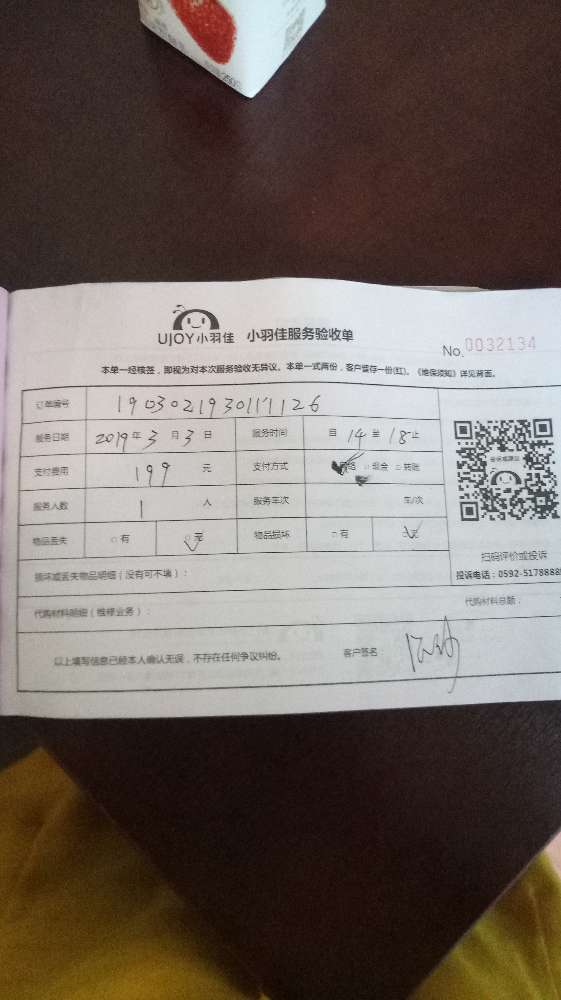 UJOY小羽佳 小羽佳服务验收单
No.0032134
本单一经核签，即视为对本次服务验收无异议。本单一式两份，客户留存一份(红)。《维保须知》详见背面。
订单编号 1903021930117126
服务日期 2019年3月3日 服务时间 自14至18止
支付费用 199元 支付方式 网络 □现金 □转账
服务人数 1人 服务车次 车/次
物品丢失 □有 □无 物品损坏 □有 □无
扫码评价或投诉
损坏或丢失物品明细（没有可不填）：
投诉电话：0592-5178888
代购材料明细（维修业务）：
代购材料总额：
以上填写信息已经本人确认无误，不存在任何争议纠纷。 客户签名：